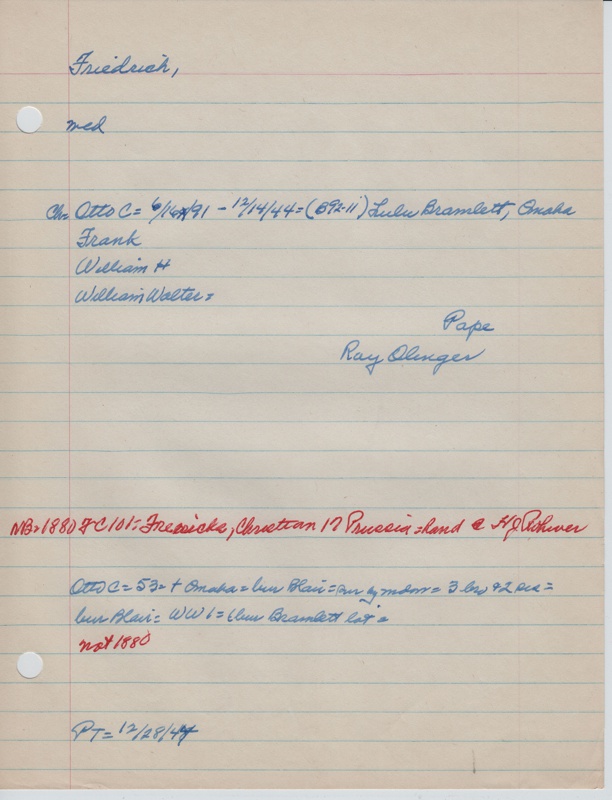 Friedrich,
med
Ch= Otto C= 6/16/91 - 12/14/44=(B92-11) Lulu Bramlett, Omaha
Frank
William H
William Walter=
Pape
Ray Olinger
NB=1880 FC101= Frericks, Christian 17 Prussia=hand @ HJ Rohwer
Otto C= 53=+ Omaha=bur Blair=sur by mdow= 3 bro +2 sis=
bur Blair= WW1=(bur Bramlett lot=
not 1880
PT=12/28/44